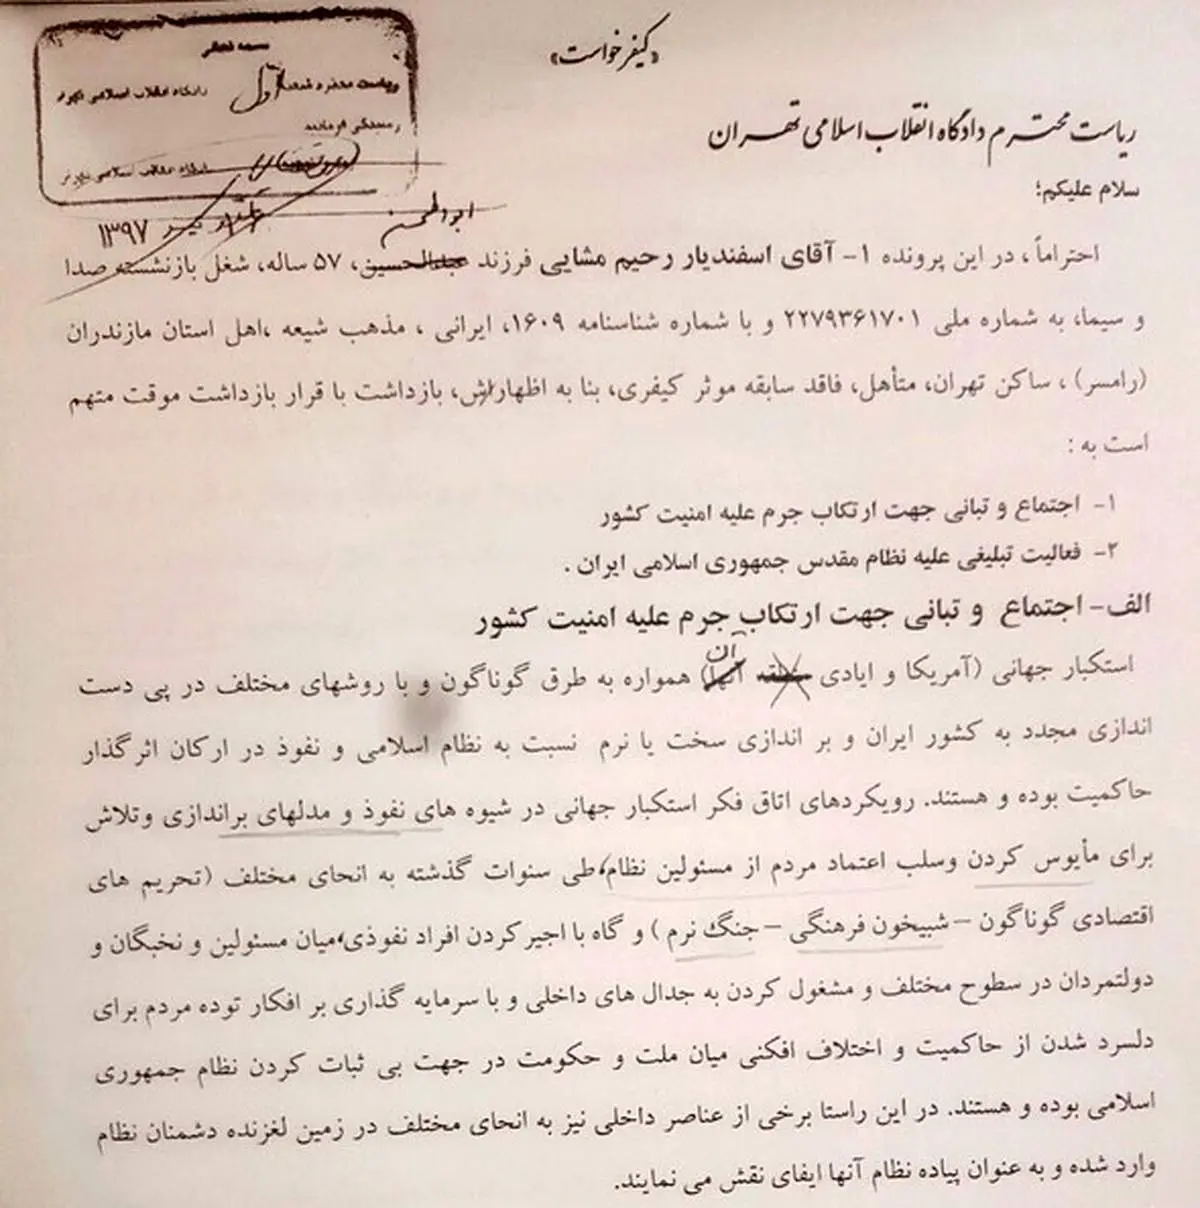 «کیفرخواست»
بسمه تعالی
ریاست محترم شعبه اول دادگاه انقلاب اسلامی تهران
ریاست محترم دادگاه انقلاب اسلامی تهران
سلام علیکم؛
۱۳۹۷
ابوالحسن
احتراماً، در این پرونده ۱- آقای اسفندیار رحیم مشایی فرزند عبدالحسین، ۵۷ ساله، شغل بازنشسته صدا
و سیما، به شماره ملی ۲۲۷۹۳۶۱۷۰۱ و با شماره شناسنامه ۱۶۰۹، ایرانی ، مذهب شیعه ،اهل استان مازندران
(رامسر) ، ساکن تهران، متأهل، فاقد سابقه موثر کیفری، بنا به اظهاراش، بازداشت با قرار بازداشت موقت متهم
است به :
۱- اجتماع و تبانی جهت ارتکاب جرم علیه امنیت کشور
۲- فعالیت تبلیغی علیه نظام مقدس جمهوری اسلامی ایران .
الف- اجتماع و تبانی جهت ارتکاب جرم علیه امنیت کشور
آن
استکبار جهانی (آمریکا و ایادی آنها) همواره به طرق گوناگون و با روشهای مختلف در پی دست
اندازی مجدد به کشور ایران و بر اندازی سخت یا نرم نسبت به نظام اسلامی و نفوذ در ارکان اثرگذار
حاکمیت بوده و هستند. رویکردهای اتاق فکر استکبار جهانی در شیوه های نفوذ و مدلهای براندازی وتلاش
برای مأیوس کردن وسلب اعتماد مردم از مسئولین نظام،طی سنوات گذشته به انحای مختلف (تحریم های
اقتصادی گوناگون – شبیخون فرهنگی – جنگ نرم ) و گاه با اجیر کردن افراد نفوذی،میان مسئولین و نخبگان و
دولتمردان در سطوح مختلف و مشغول کردن به جدال های داخلی و با سرمایه گذاری بر افکار توده مردم برای
دلسرد شدن از حاکمیت و اختلاف افکنی میان ملت و حکومت در جهت بی ثبات کردن نظام جمهوری
اسلامی بوده و هستند. در این راستا برخی از عناصر داخلی نیز به انحای مختلف در زمین لغزنده دشمنان نظام
وارد شده و به عنوان پیاده نظام آنها ایفای نقش می نمایند.